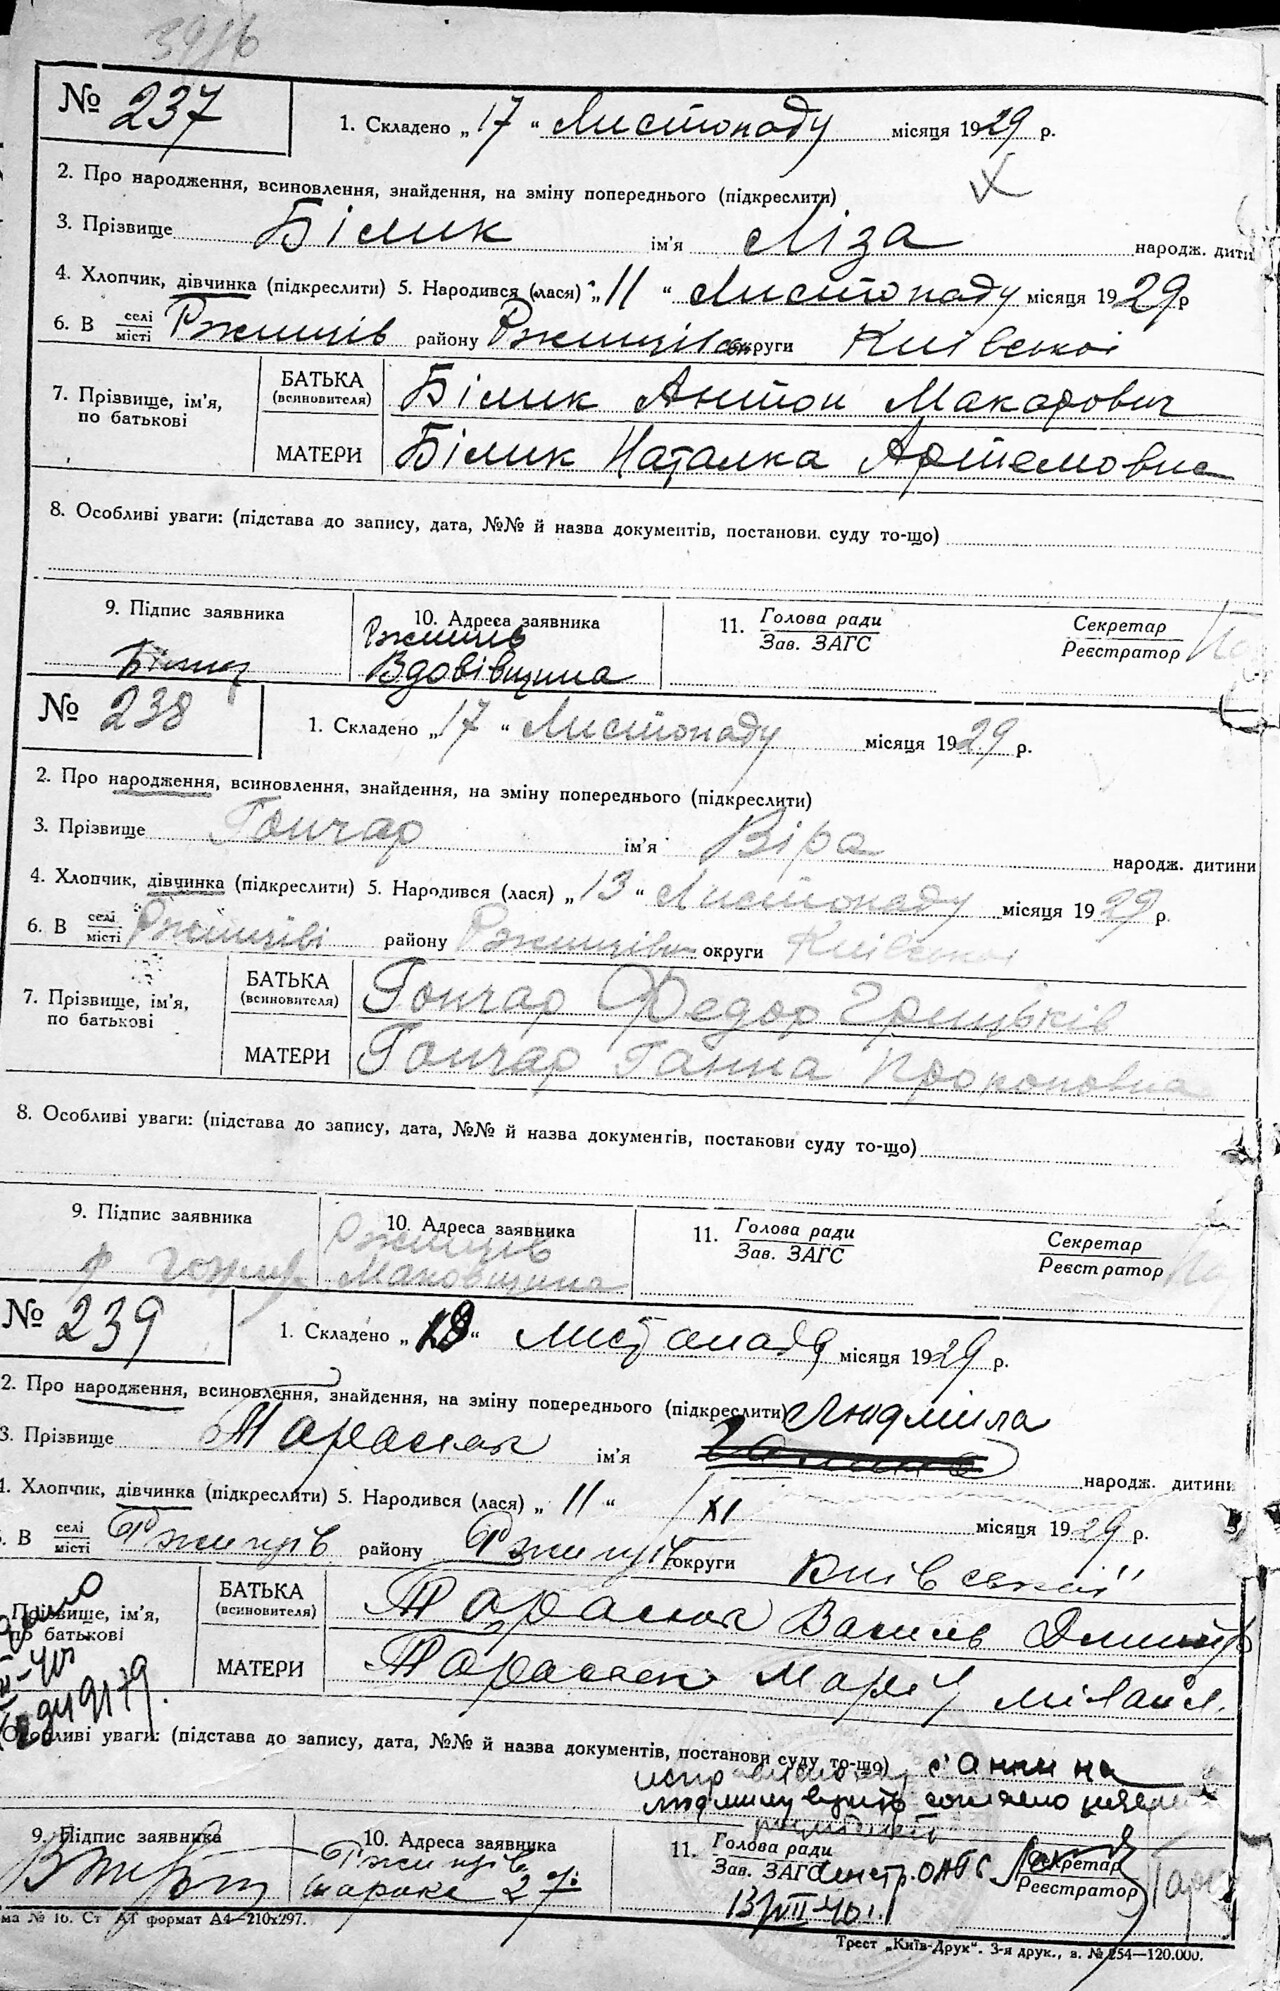 № 237
1. Складено „17“ Листопаду місяця 1929 р.
2. Про народження, всиновлення, знайдення, на зміну попереднього (підкреслити)
3. Прізвище Білик ім'я Ліза народж. дити
4. Хлопчик, дівчинка (підкреслити) 5. Народився (лася) „11“ Листопаду місяця 1929 р
6. В селі місті Ржищів району Ржищівськ округи Київської
7. Прізвище, ім'я, по батькові
БАТЬКА (всиновителя) Білик Антон Макарович
МАТЕРИ Білик Наталка Артемовна
8. Особливі уваги: (підстава до запису, дата, №№ й назва документів, постанови суду то-що)
9. Підпис заявника
10. Адреса заявника
Ржищів
Вдовівщина
11. Голова ради
Зав. ЗАГС
Секретар
Реєстратор
№ 238
1. Складено „17“ Листопаду місяця 1929 р.
2. Про народження, всиновлення, знайдення, на зміну попереднього (підкреслити)
3. Прізвище Гончар ім'я Віра народж. дитини
4. Хлопчик, дівчинка (підкреслити) 5. Народився (лася) „13“ Листопаду місяця 1929 р.
6. В селі місті Ржищіві району Ржищівськ округи Київської
7. Прізвище, ім'я, по батькові
БАТЬКА (всиновителя) Гончар Федор Грицьків
МАТЕРИ Гончар Ганна Прокоповна
8. Особливі уваги: (підстава до запису, дата, №№ й назва документів, постакови суду то-що)
9. Підпис заявника
10. Адреса заявника
Ржищів
Маковщина
11. Голова ради
Зав. ЗАГС
Секретар
Реєстратор
№ 239
1. Складено „ “ листопада місяця 1929 р.
2. Про народження, всиновлення, знайдення, на зміну попереднього (підкреслити) Людміла
3. Прізвище Тарасюк ім'я народж. дитини
4. Хлопчик, дівчинка (підкреслити) 5. Народився (лася) „11“ XI місяця 1929 р.
В селі місті Ржищів району Ржищів округи Київської
Прізвище, ім'я, по батькові
БАТЬКА (всиновителя) Тарасюк Василь Дмитр
МАТЕРИ Тарасюк Марія Міхайл.
Особливі уваги: (підстава до запису, дата, №№ й назва документів, постанови суду то-що) с Анни на
Людмилу
9. Підпис заявника
10. Адреса заявника
Ржищів
11. Голова ради
Зав. ЗАГС
Секретар
Реєстратор
13/VII-40
ма № 16. Ст АТ формат А4—210х297.
Трест „Київ-Друк“. 3-я друк., з. № 254—120.000.